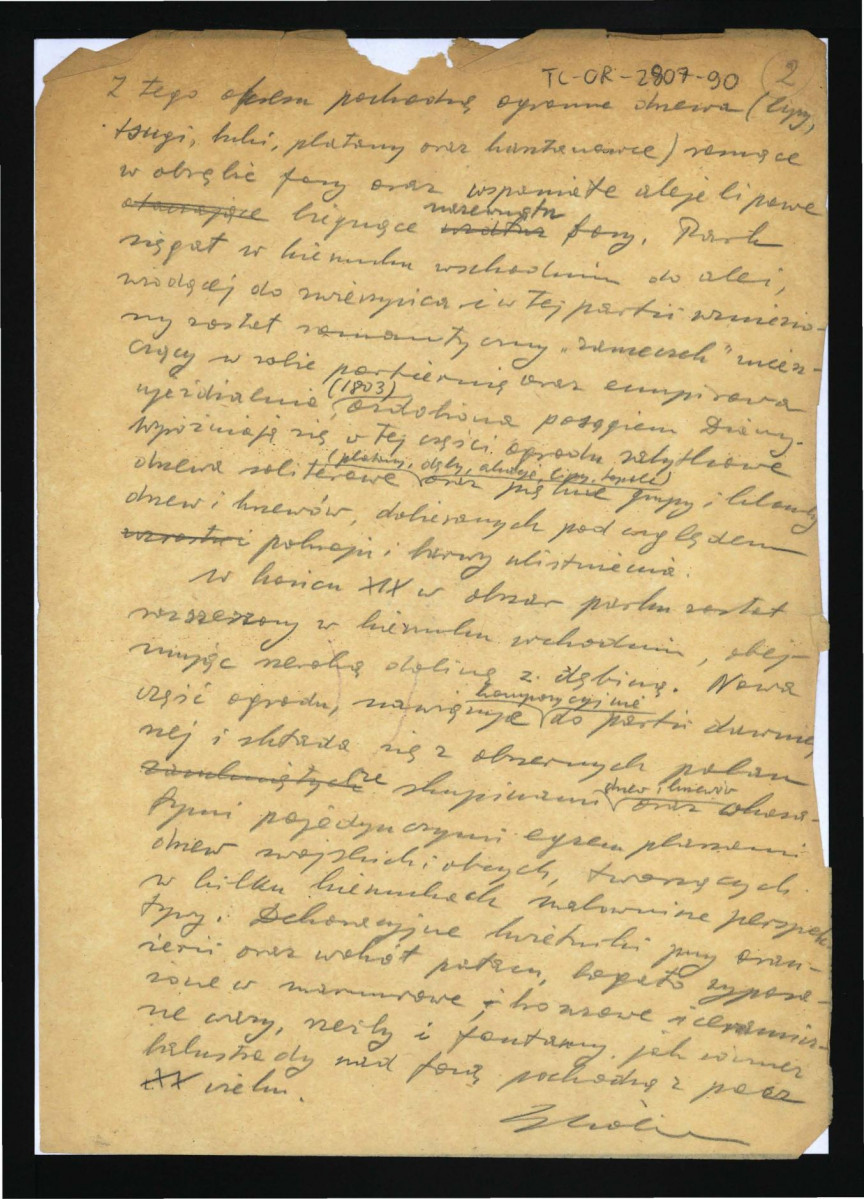 TC-OR-2807-90 2
Z tego okresu pochodzą ogromne drzewa (lipy,
tsugi, buki, platany oraz kasztanowce) rosnące
w obrębie fosy oraz wspaniałe aleje lipowe
otaczające biegnące wzdłuż nazewnątrz fosy. Park
sięgał w kierunku wschodnim do alei,
wiodącej do zwierzyńca i w tej partii wzniesio-
ny został romantyczny "zameczek" miesz-
czący w sobie portiernię oraz empirowa
ujeżdżalnia (1803) ozdobiona posągiem Diany.
Wyróżniają się w tej części ogrodu zabytkowe
drzewa soliterowe (platany, dęby, akacje, lipy, topole) oraz piękne grupy i klomby
drzew i krzewów, dobieranych pod względem
wzrostu i pokroju i barwy ulistnienia.
W końcu XIX w obszar parku został
rozszerzony w kierunku wschodnim, obej-
mując szeroką dolinę z dąbiną. Nowa
część ogrodu, nawiązuje kompozycyjnie do partii dawniej
nej i składa się z obszernych polan
zamkniętych ze skupinami drzew i krzewów oraz okaza-
łymi pojedynczymi egzemplarzami
drzew swojskich i obcych, tworzących
w kilku kierunkach malownicze perspek
tywy. Dekoracyjne kwietniki przy oran-
żerii oraz wokół pałacu, bogato wyposa-
żone w marmurowe, i bronzowe i ceramicz-
ne wazy, rzeźby i fontanny jak również
balustrady nad fosą pochodzą z pocz
XX wieku.